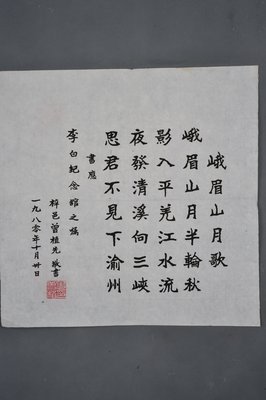 峨眉山月歌
峨眉山月半輪秋
影入平羌江水流
夜發清溪向三峽
思君不見下渝州
書應
李白紀念館之囑
梓邑曾植先敬書
一九八零年十月卅日